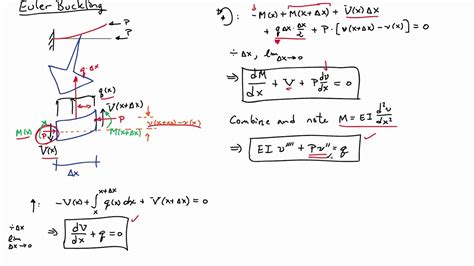 Euler Buckling
P
q·Δx
q(x)
V(x+Δx)
P
M(x)
M(x+Δx)
v(x+Δx)-v(x)
V(x)
Δx
↑: -V(x) + ∫ₓˣ⁺ᐞˣ q(x) dx + V(x+Δx) = 0
÷Δx
lim Δx→0
⇒ dV/dx + q = 0
: -M(x) + M(x+Δx) + V(x)Δx
+ qΔx·Δx/2 + P·[v(x+Δx)-v(x)] = 0
÷Δx, lim Δx→0
⇒ dM/dx + V + P dv/dx = 0
Combine and note M = EI d²v/dx²
⇒ EI v'''' + Pv'' = q